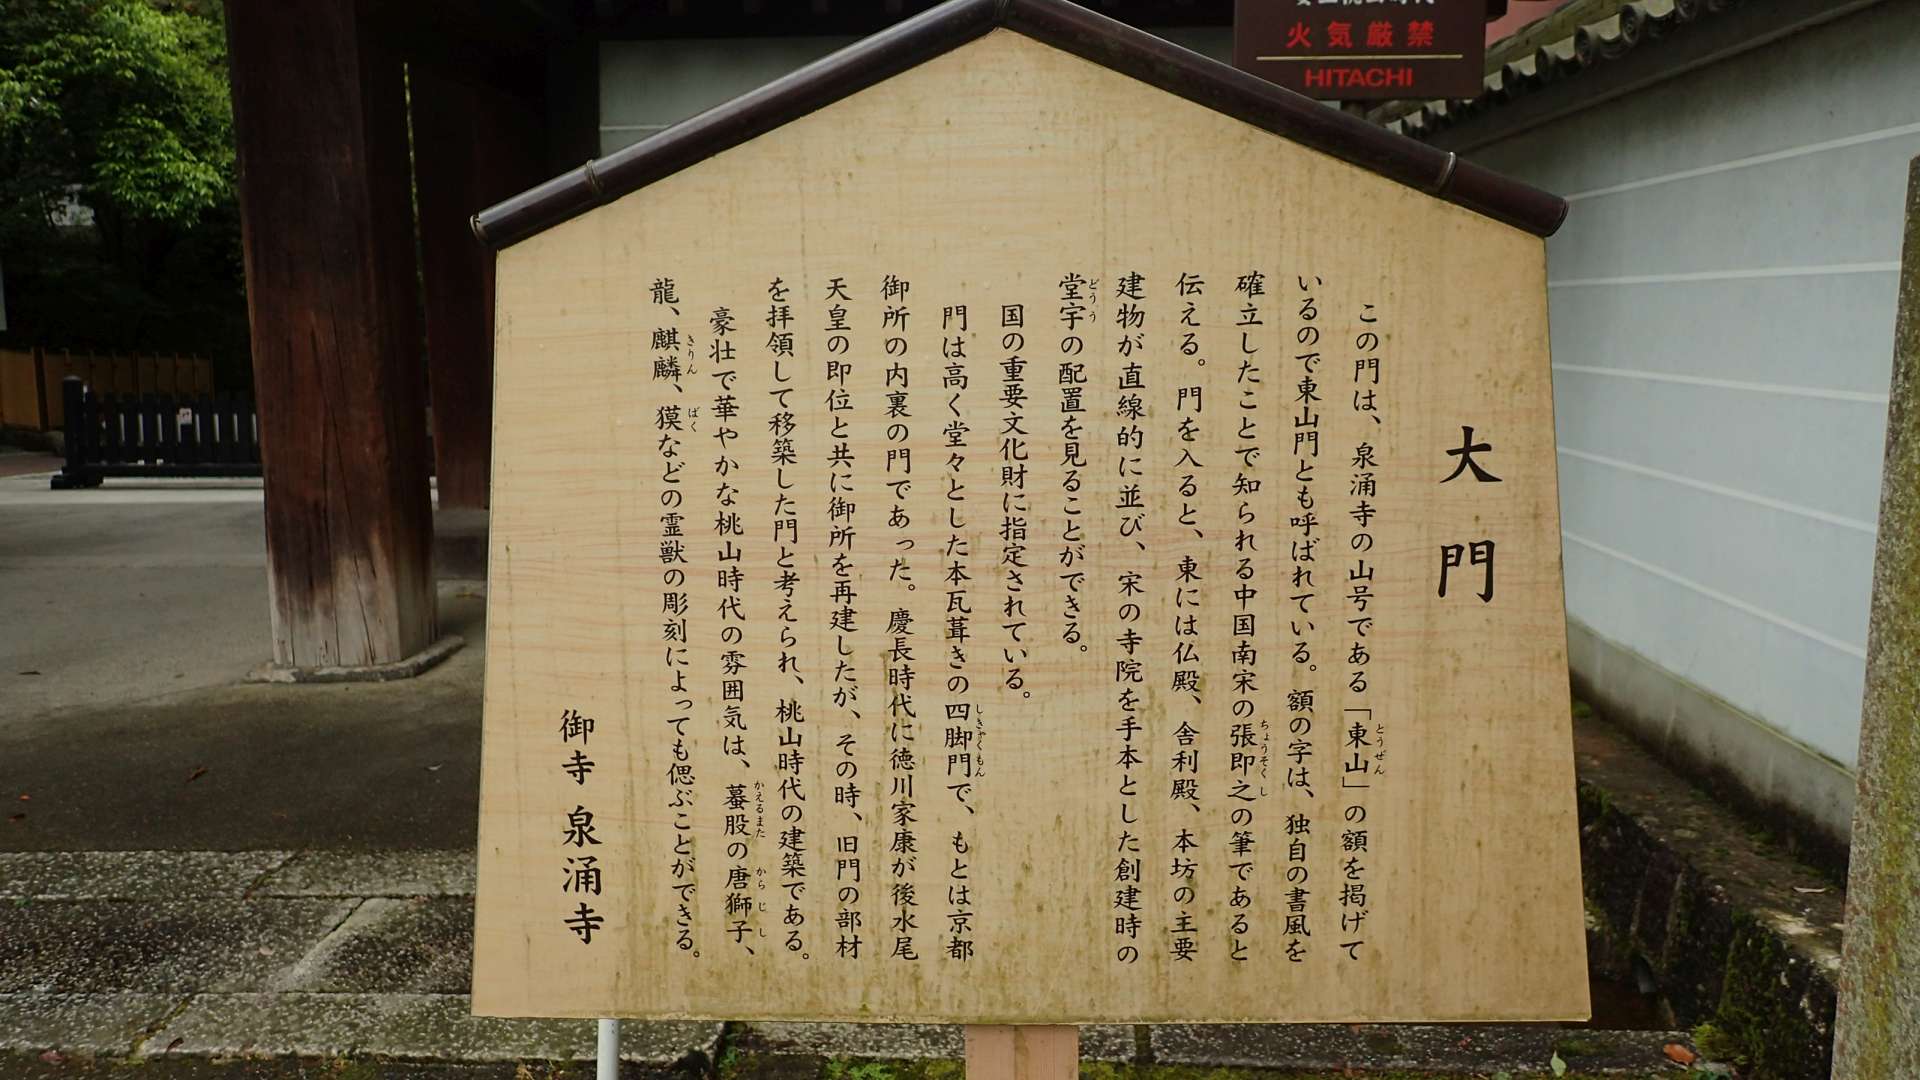 火気厳禁
HITACHI
大門
この門は、泉涌寺の山号である「東山」の額を掲げて
いるので東山門とも呼ばれている。額の字は、独自の書風を
確立したことで知られる中国南宋の張即之の筆であると
伝える。門を入ると、東には仏殿、舎利殿、本坊の主要
建物が直線的に並び、宋の寺院を手本とした創建時の
堂宇の配置を見ることができる。
国の重要文化財に指定されている。
門は高く堂々とした本瓦葺きの四脚門で、もとは京都
御所の内裏の門であった。慶長時代に徳川家康が後水尾
天皇の即位と共に御所を再建したが、その時、旧門の部材
を拝領して移築した門と考えられ、桃山時代の建築である。
豪壮で華やかな桃山時代の雰囲気は、蟇股の唐獅子、
龍、麒麟、獏などの霊獣の彫刻によっても偲ぶことができる。
御寺 泉涌寺